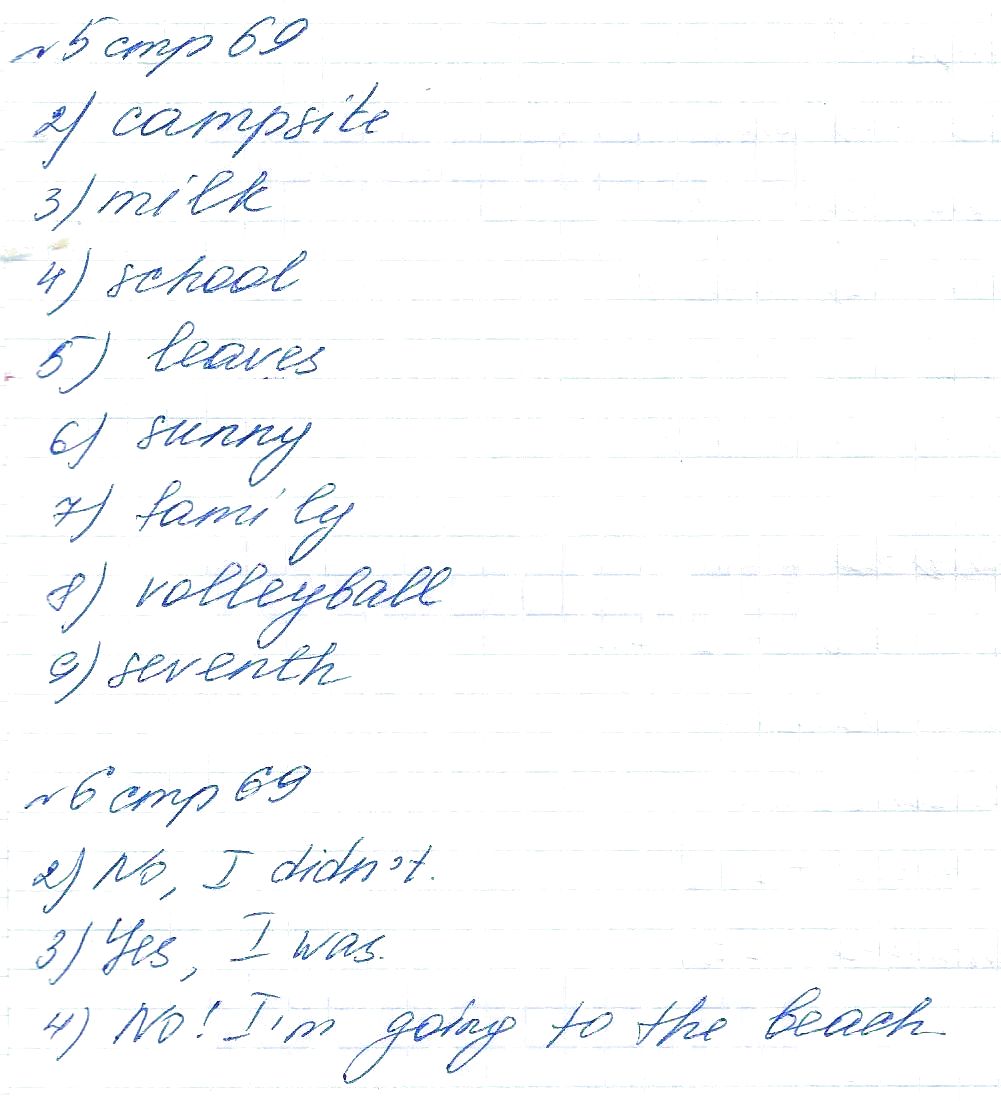 №5 стр 69
2) campsite
3) milk
4) school
5) leaves
6) sunny
7) family
8) volleyball
9) seventh
№6 стр 69
2) No, I didn't.
3) Yes, I was.
4) No! I'm going to the beach